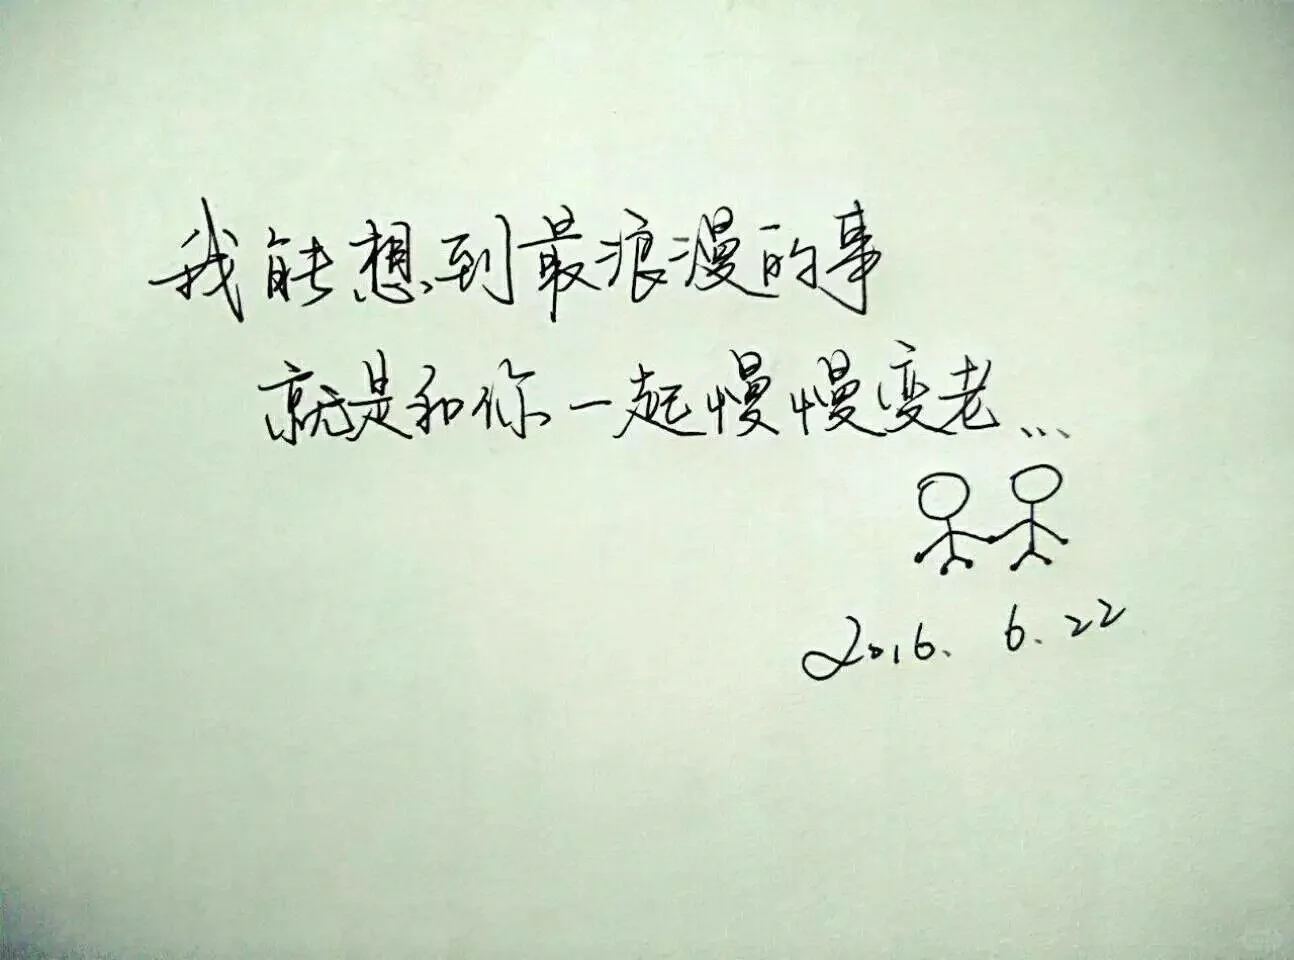 我能想到最浪漫的事
就是和你一起慢慢变老...
2016. 6. 22